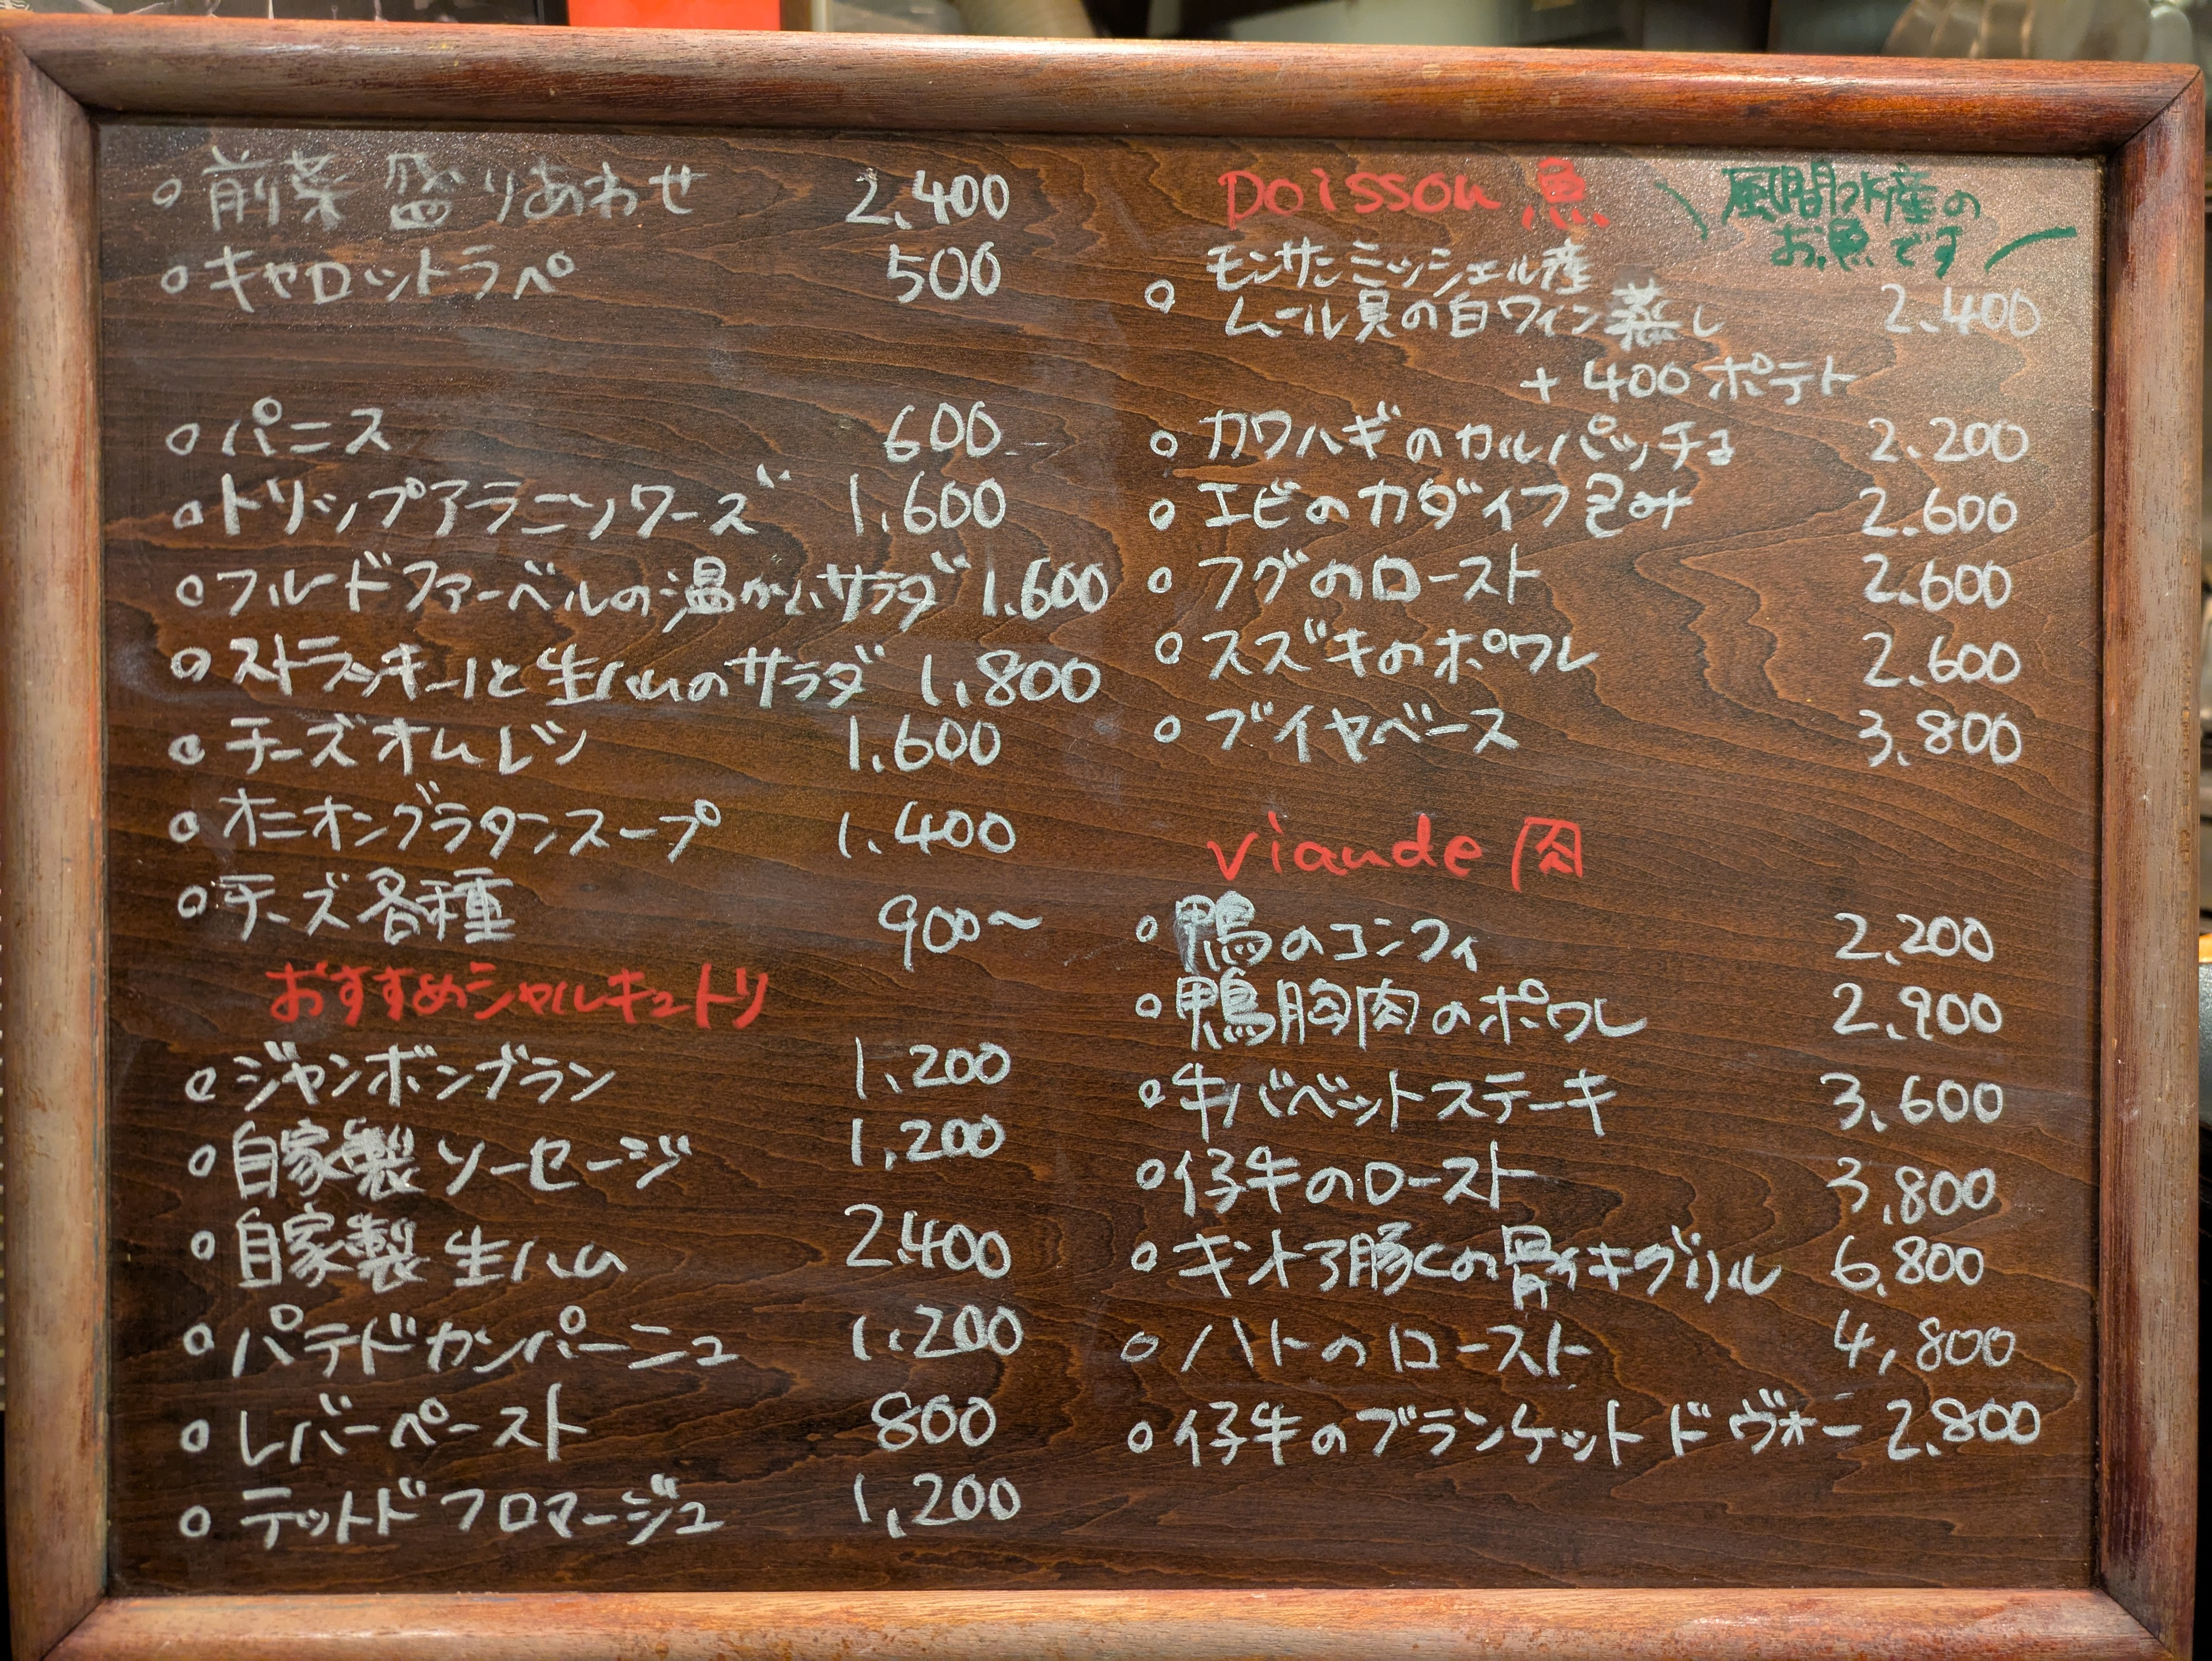 前菜 盛りあわせ 2,400
キャロットラペ 500
パニス 600
トリップアラニソワーズ 1,600
フルードファーベルの温かいサラダ 1,600
ストラッキーノと生ハムのサラダ 1,800
チーズオムレツ 1,600
オニオングラタンスープ 1,400
チーズ各種 900〜
おすすめシャルキュトリ
ジャンボンブラン 1,200
自家製ソーセージ 1,200
自家製生ハム 2,400
パテドカンパーニュ 1,200
レバーペースト 800
テットドフロマージュ 1,200
Poisson 魚
風間水産の
お魚です
モンサンミッシェル産
ムール貝の白ワイン蒸し 2,400
+400 ポテト
カワハギのカルパッチョ 2,200
エビのカダイフ包み 2,600
フグのロースト 2,600
スズキのポワレ 2,600
ブイヤベース 3,800
viande 肉
鴨のコンフィ 2,200
鴨胸肉のポワレ 2,900
牛バベットステーキ 3,600
仔牛のロースト 3,800
キントア豚の骨付きグリル 6,800
ハトのロースト 4,800
仔牛のブランケットドヴォー 2,800